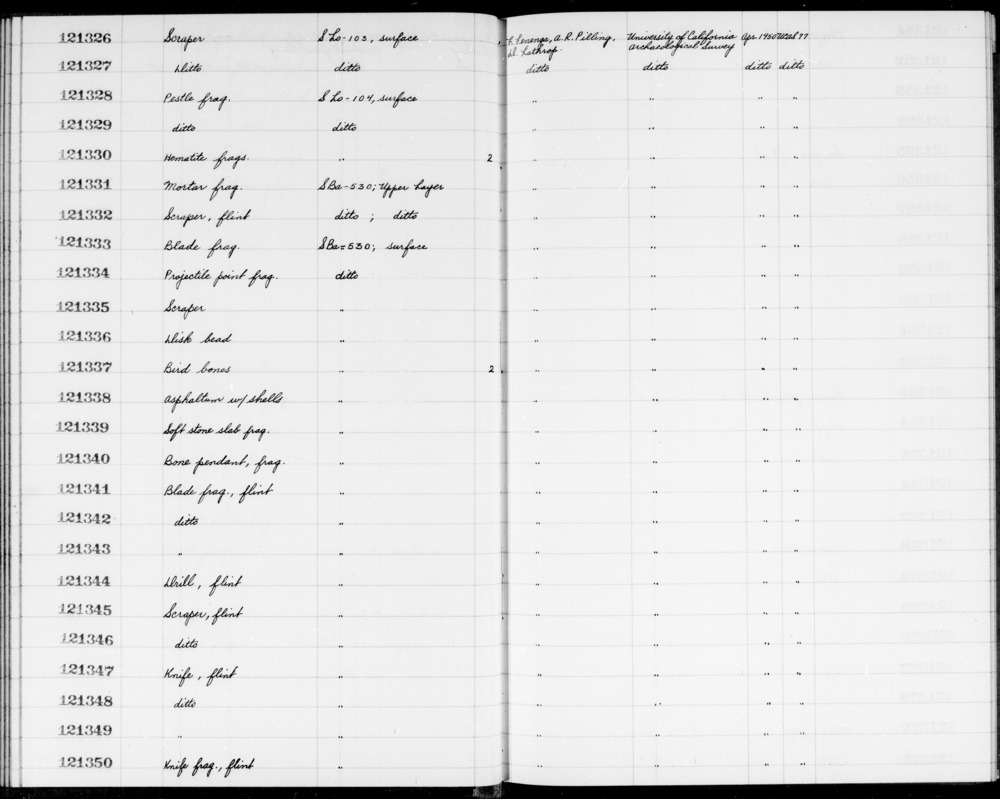 121326 Scraper SLo-103, surface F. Fenenga, A.R. Pilling, University of California Apr. 1950 UCas 77
D. Lathrop. Archaeological Survey
121327 Ditto ditto ditto ditto ditto ditto
121328 Pestle frag. SLo-104, surface " " " "
121329 ditto ditto " " " "
121330 Hematite frags. " 2 " " " "
121331 Mortar frag. SBa-530; Upper Layer " " " "
121332 Scraper, flint ditto ; ditto " " " "
121333 Blade frag. SBa-530; surface " " " "
121334 Projectile point frag. ditto " " " "
121335 Scraper " " " " "
121336 Disk bead " " " " "
121337 Bird bones " 2 " " " "
121338 Asphaltum w/ shells " " " " "
121339 Soft stone slab frag. " " " " "
121340 Bone pendant, frag. " " " " "
121341 Blade frag., flint " " " " "
121342 ditto " " " " "
121343 " " " " " "
121344 Drill, flint " " " " "
121345 Scraper, flint " " " " "
121346 ditto " " " " "
121347 Knife, flint " " " " "
121348 ditto " " " " "
121349 " " " " " "
121350 Knife frag., flint " " " " "